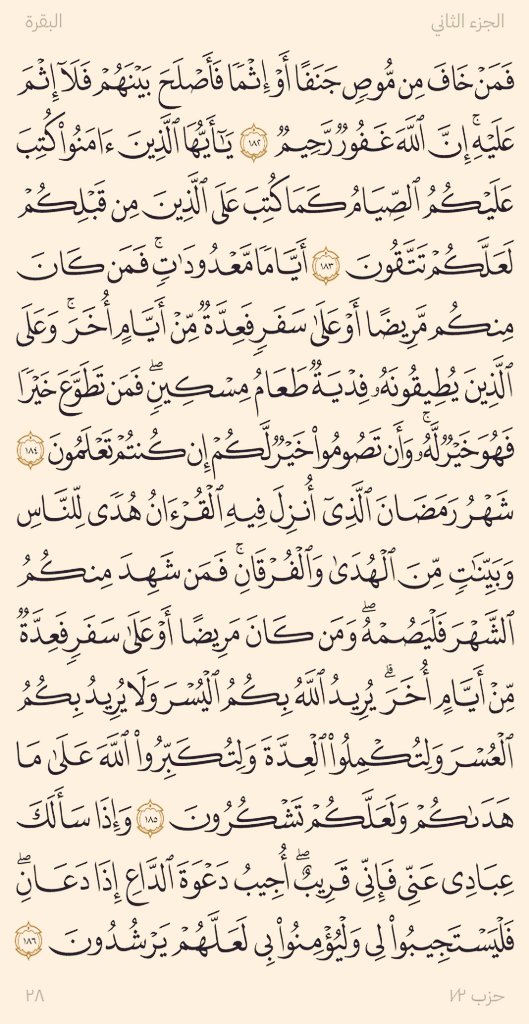 الجزء الثاني
البقرة
فَمَنْ خَافَ مِن مُّوصٍ جَنَفًا أَوْ إِثْمًا فَأَصْلَحَ بَيْنَهُمْ فَلَآ إِثْمَ
عَلَيْهِ ۚ إِنَّ ٱللَّهَ غَفُورٌ رَّحِيمٌ ١٨٢ يَـٰٓأَيُّهَا ٱلَّذِينَ ءَامَنُوا۟ كُتِبَ
عَلَيْكُمُ ٱلصِّيَامُ كَمَا كُتِبَ عَلَى ٱلَّذِينَ مِن قَبْلِكُمْ
لَعَلَّكُمْ تَتَّقُونَ ١٨٣ أَيَّامًا مَّعْدُودَٰتٍ ۚ فَمَن كَانَ
مِنكُم مَّرِيضًا أَوْ عَلَىٰ سَفَرٍ فَعِدَّةٌ مِّنْ أَيَّامٍ أُخَرَ ۚ وَعَلَى
ٱلَّذِينَ يُطِيقُونَهُۥ فِدْيَةٌ طَعَامُ مِسْكِينٍ ۖ فَمَن تَطَوَّعَ خَيْرًا
فَهُوَ خَيْرٌ لَّهُۥ ۚ وَأَن تَصُومُوا۟ خَيْرٌ لَّكُمْ ۖ إِن كُنتُمْ تَعْلَمُونَ ١٨٤
شَهْرُ رَمَضَانَ ٱلَّذِىٓ أُنزِلَ فِيهِ ٱلْقُرْءَانُ هُدًى لِّلنَّاسِ
وَبَيِّنَـٰتٍ مِّنَ ٱلْهُدَىٰ وَٱلْفُرْقَانِ ۚ فَمَن شَهِدَ مِنكُمُ
ٱلشَّهْرَ فَلْيَصُمْهُ ۖ وَمَن كَانَ مَرِيضًا أَوْ عَلَىٰ سَفَرٍ فَعِدَّةٌ
مِّنْ أَيَّامٍ أُخَرَ ۗ يُرِيدُ ٱللَّهُ بِكُمُ ٱلْيُسْرَ وَلَا يُرِيدُ بِكُمُ
ٱلْعُسْرَ وَلِتُكْمِلُوا۟ ٱلْعِدَّةَ وَلِتُكَبِّرُوا۟ ٱللَّهَ عَلَىٰ مَا
هَدَىٰكُمْ وَلَعَلَّكُمْ تَشْكُرُونَ ١٨٥ وَإِذَا سَأَلَكَ
عِبَادِى عَنِّى فَإِنِّى قَرِيبٌ ۖ أُجِيبُ دَعْوَةَ ٱلدَّاعِ إِذَا دَعَانِ ۖ
فَلْيَسْتَجِيبُوا۟ لِى وَلْيُؤْمِنُوا۟ بِى لَعَلَّهُمْ يَرْشُدُونَ ١٨٦
حزب ٣
٢٨